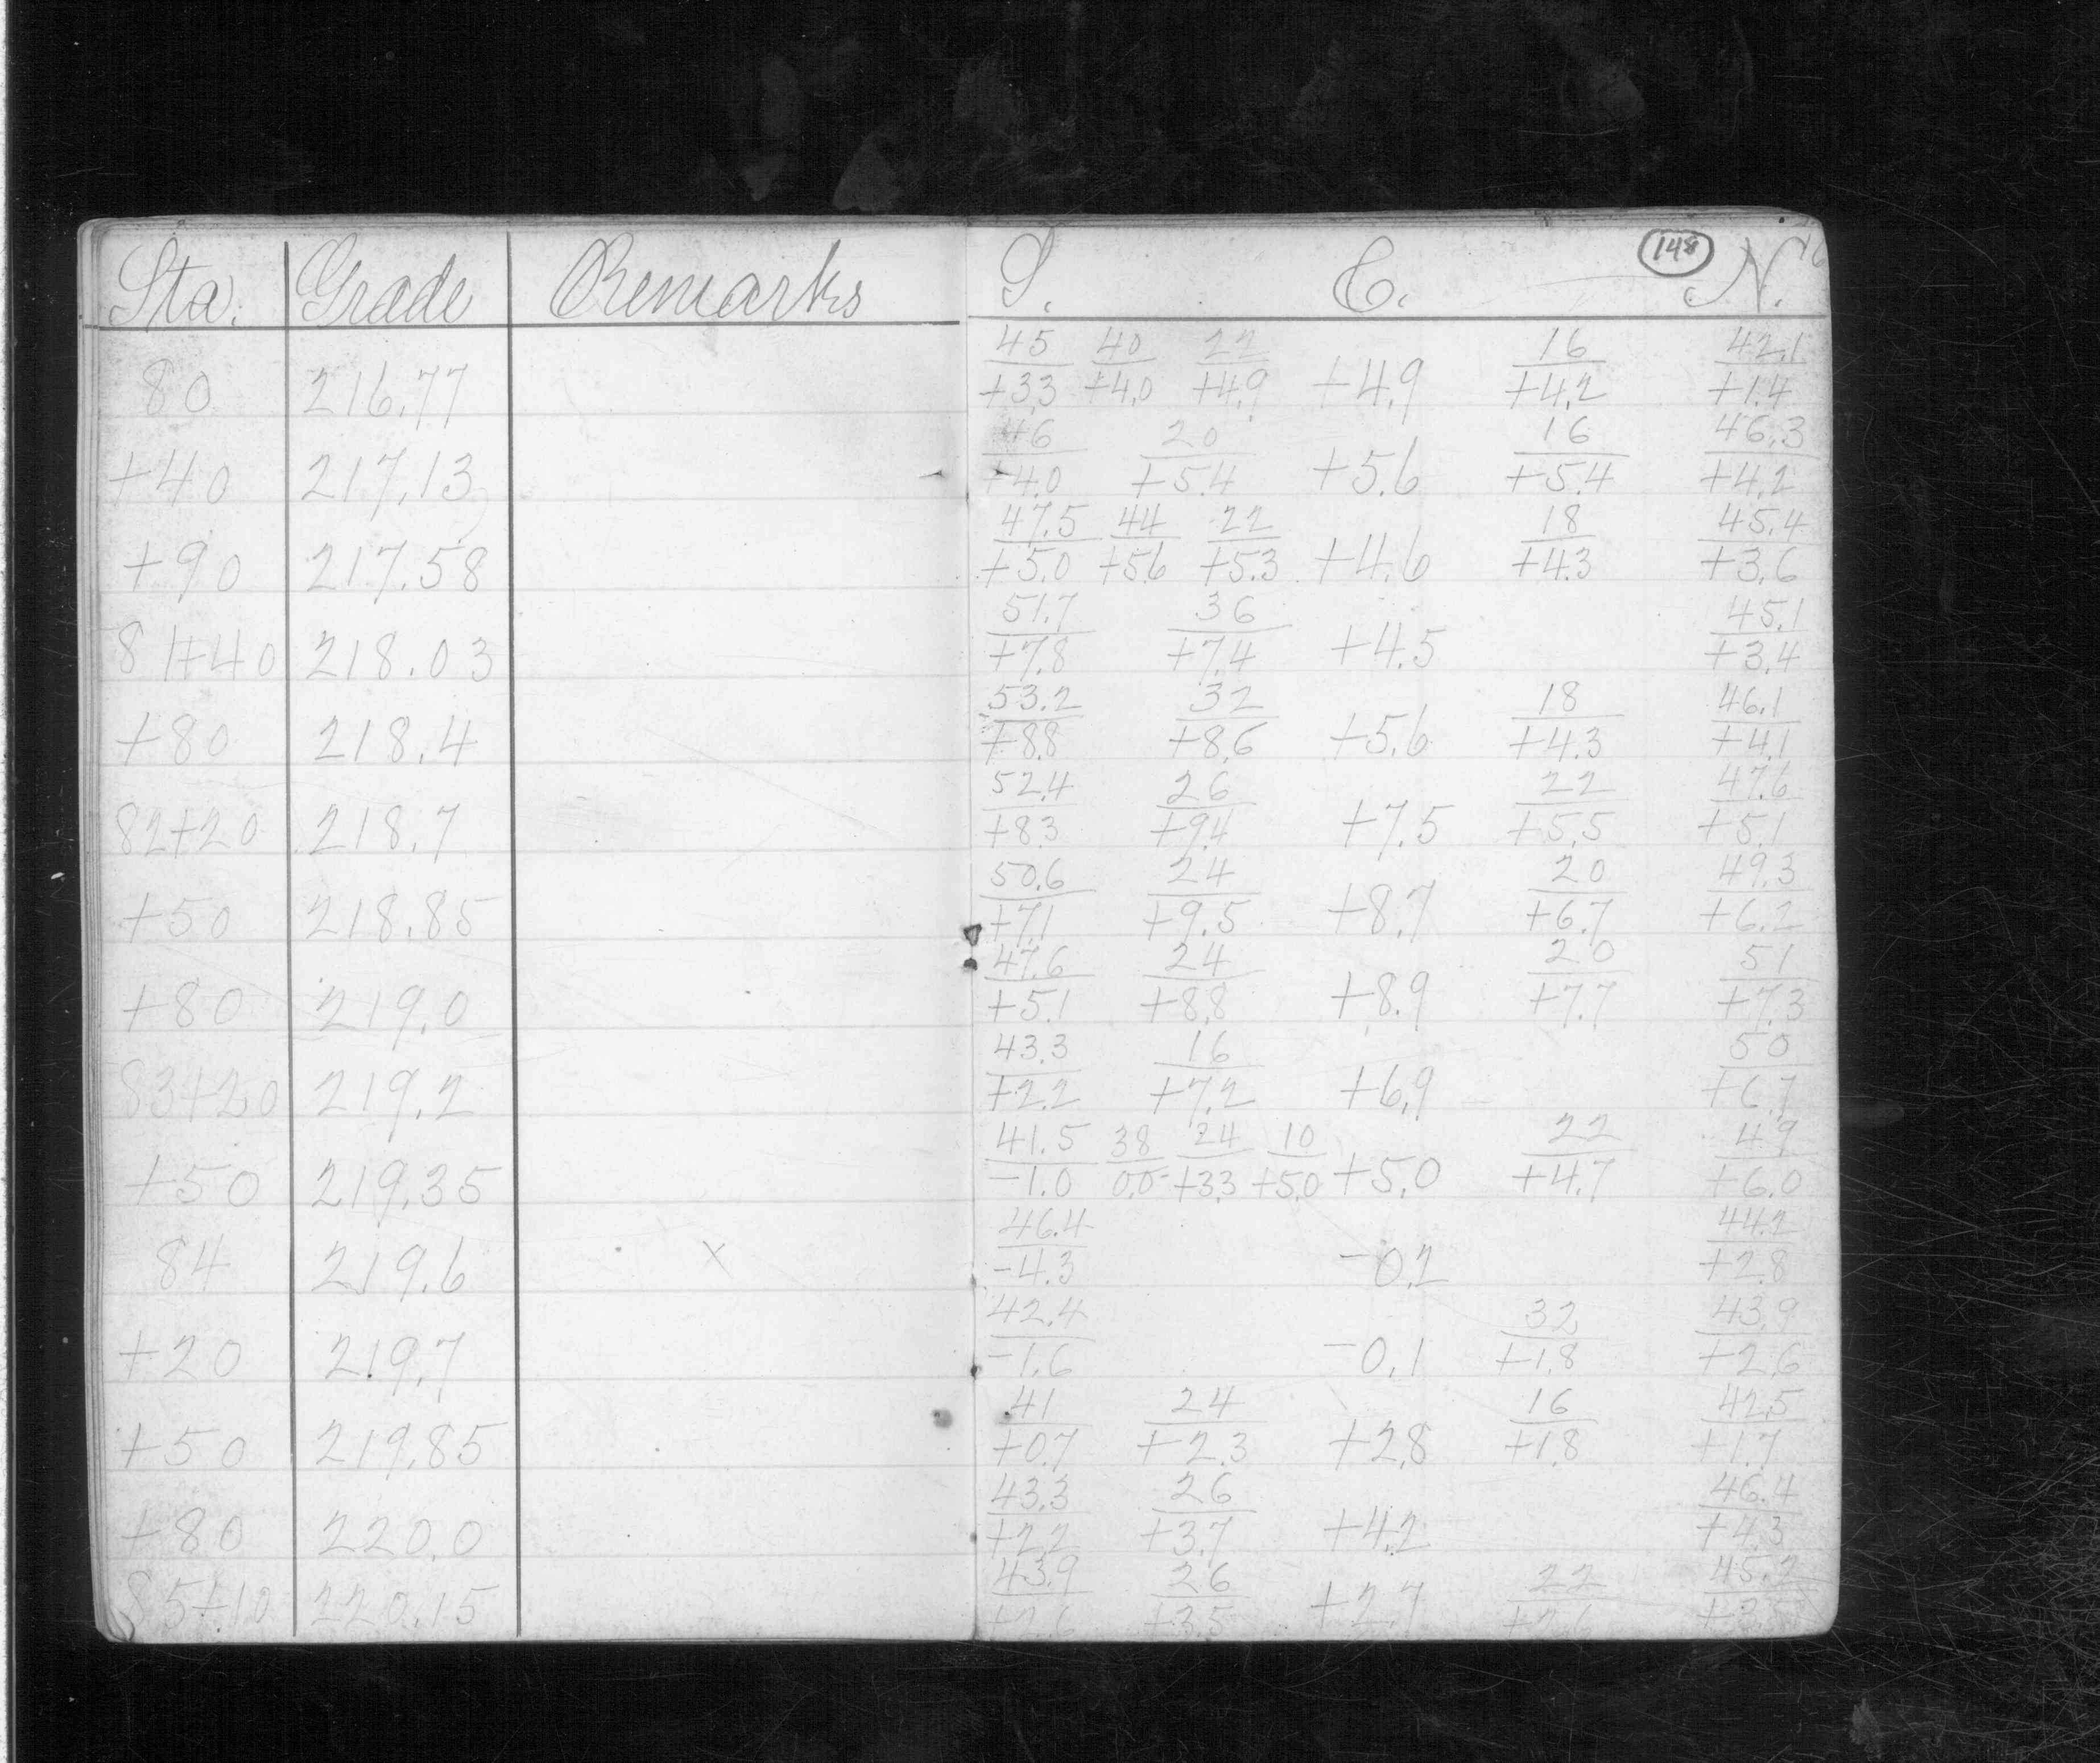 Sta. Grade Remarks S. C. 148 N.
45 40 22 16 42.1
80 216.77 +3.3 +4.0 +4.9 +4.9 +4.2 +1.4
46 20 16 46.3
+40 217.13 +4.0 +5.4 +5.6 +5.4 +4.2
47.5 44 22 18 45.4
+90 217.58 +5.0 +5.6 +5.3 +4.6 +4.3 +3.6
51.7 36 45.1
81+40 218.03 +7.8 +7.4 +4.5 +3.4
53.2 32 18 46.1
+80 218.4 +8.8 +8.6 +5.6 +4.3 +4.1
52.4 26 22 47.6
82+20 218.7 +8.3 +9.4 +7.5 +5.5 +5.1
50.6 24 20 49.3
+50 218.85 +7.1 +9.5 +8.7 +6.7 +6.2
47.6 24 20 51
+80 219.0 +5.1 +8.8 +8.9 +7.7 +7.3
43.3 16 50
83+20 219.2 +2.2 +7.2 +6.9 +6.7
41.5 38 24 10 22 49
+50 219.35 -1.0 0.0 +3.3 +5.0 +5.0 +4.7 +6.0
46.4 44.2
84 219.6 x -4.3 -0.2 +2.8
42.4 32 43.9
+20 219.7 -1.6 -0.1 +1.8 +2.6
41 24 16 42.5
+50 219.85 +0.7 +2.3 +2.8 +1.8 +1.7
43.3 26 46.4
+80 220.0 +2.2 +3.7 +4.2 +4.3
43.9 26 22 45.2
85+10 220.15 +2.6 +3.5 +2.7 +2.6 +3.5